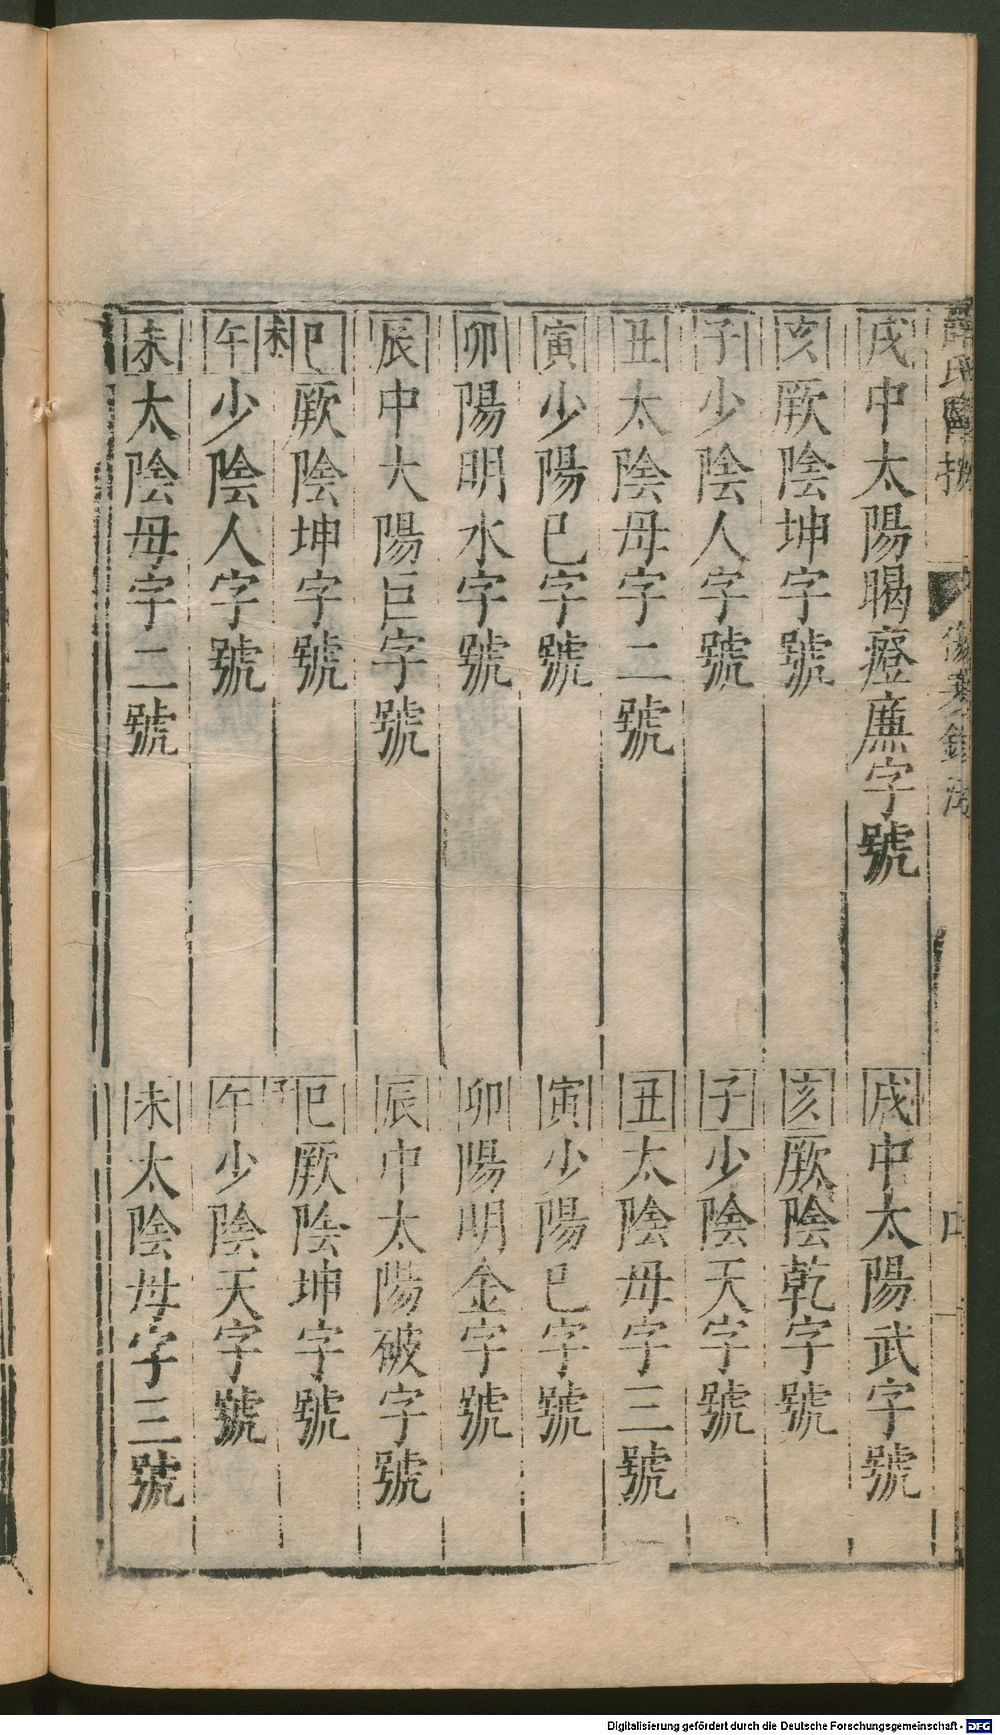 戌中太陽暍痓廉字號
亥厥陰坤字號
子少陰人字號
丑太陰母字二號
寅少陽巳字號
卯陽明水字號
辰中大陽巨字號
巳厥陰坤字號
未
午少陰人字號
未太陰母字二號
戌中太陽武字號
亥厥陰乾字號
子少陰天字號
丑太陰母字三號
寅少陽巳字號
卯陽明金字號
辰中太陽破字號
巳厥陰坤字號
午少陰天字號
未太陰母字三號
Digitalisierung gefördert durch die Deutsche Forschungsgemeinschaft - DFG